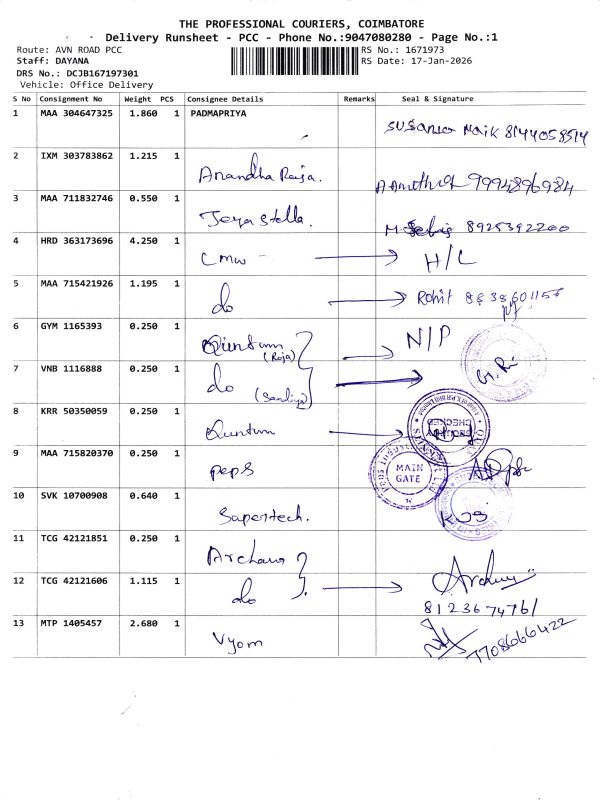 THE PROFESSIONAL COURIERS, COIMBATORE
Delivery Runsheet - PCC - Phone No.:9047080280 - Page No.:1
Route: AVN ROAD PCC
RS No.: 1671973
Staff: DAYANA
RS Date: 17-Jan-2026
DRS No.: DCJB167197301
Vehicle: Office Delivery
S No Consignment No Weight PCS Consignee Details Remarks Seal & Signature
1 MAA 304647325 1.860 1 PADMAPRIYA
Naik 8144058514
2 IXM 303783862 1.215 1
Anandha Raja. 9994896984
3 MAA 711832746 0.550 1
Jeya Stella. 8925392200
4 HRD 363173696 4.250 1
cmw H/L
5 MAA 715421926 1.195 1
do Rohit
6 GYM 1165393 0.250 1
(Raja) N/P
7 VNB 1116888 0.250 1
do
8 KRR 50350059 0.250 1
CHECKED
9 MAA 715820370 0.250 1
peps MAIN
GATE
10 SVK 10700908 0.640 1
Sapertech.
11 TCG 42121851 0.250 1
12 TCG 42121606 1.115 1
do
8123674761
13 MTP 1405457 2.680 1
Vyom 7708666422